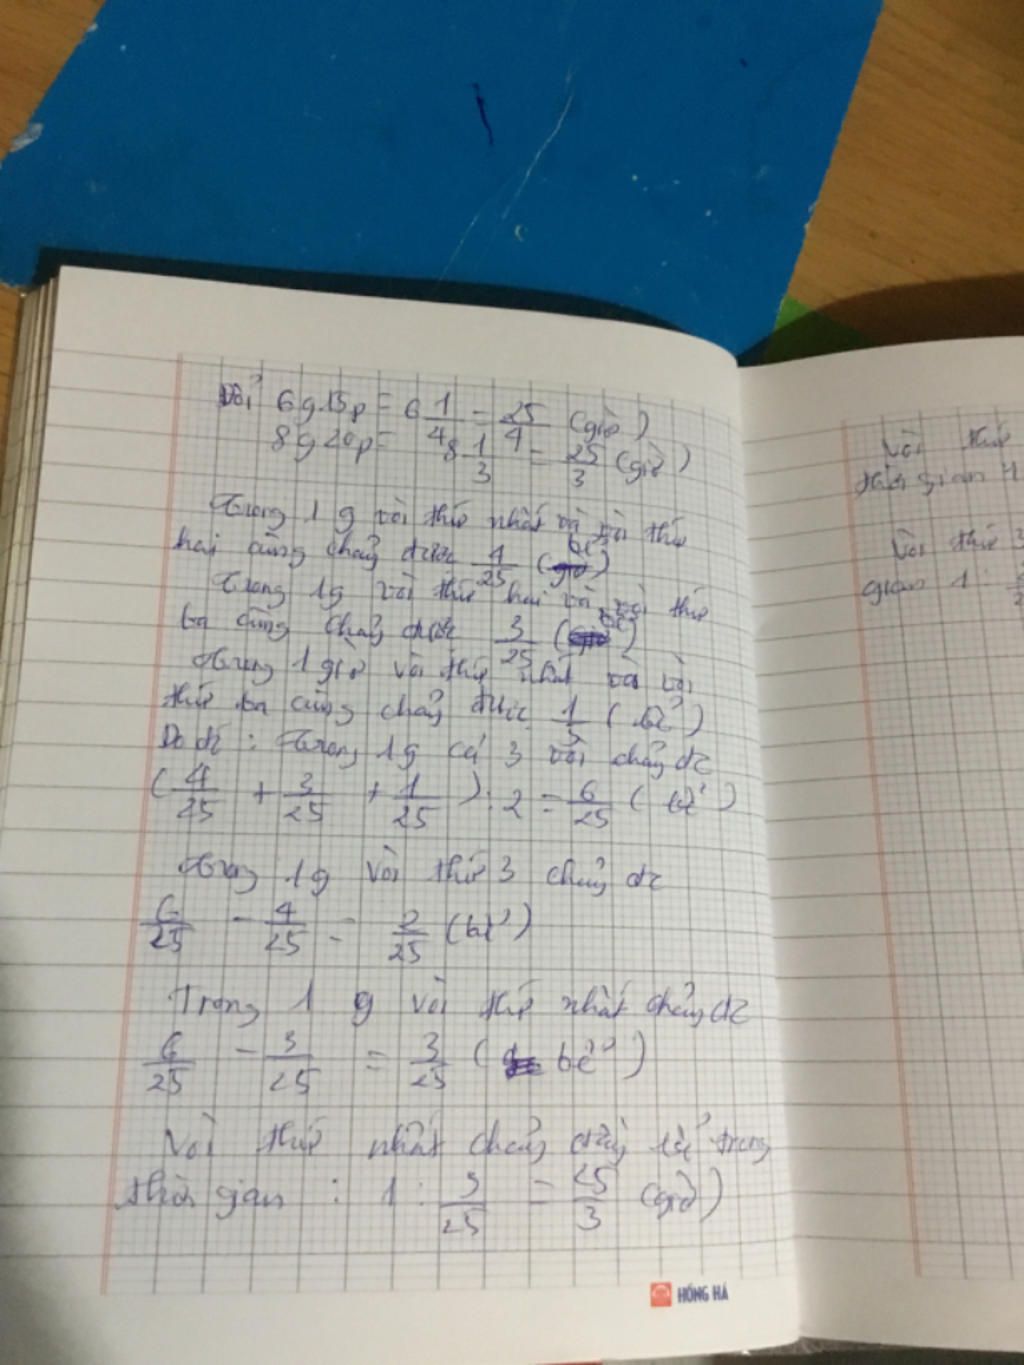 Đổi 6g15p = 6 1/4 = 25/4 (giờ)
8g20p = 8 1/3 = 25/3 (giờ)
Trong 1 g vòi thứ nhất và vòi thứ
hai cùng chảy được 4/25 (bể)
Trong 1g vòi thứ hai và vòi thứ
ba cùng chảy được 3/25 (bể)
Trong 1 giờ vòi thứ nhất và vòi
thứ ba cùng chảy được 1/5 (bể)
Do đó : Trong 1g cả 3 vòi chảy đc
(4/25 + 3/25 + 1/25) : 2 = 6/25 (bể)
Trong 1g vòi thứ 3 chảy đc
6/25 - 4/25 = 2/25 (bể)
Trong 1 g vòi thứ nhất chảy đc
6/25 - 3/25 = 3/25 (bể)
Vòi thứ nhất chảy đầy bể trong
thời gian : 1 : 3/25 = 25/3 (giờ)
HỒNG HÀ
Vòi thứ
thời gian
Vòi thứ 3
gian 1 :